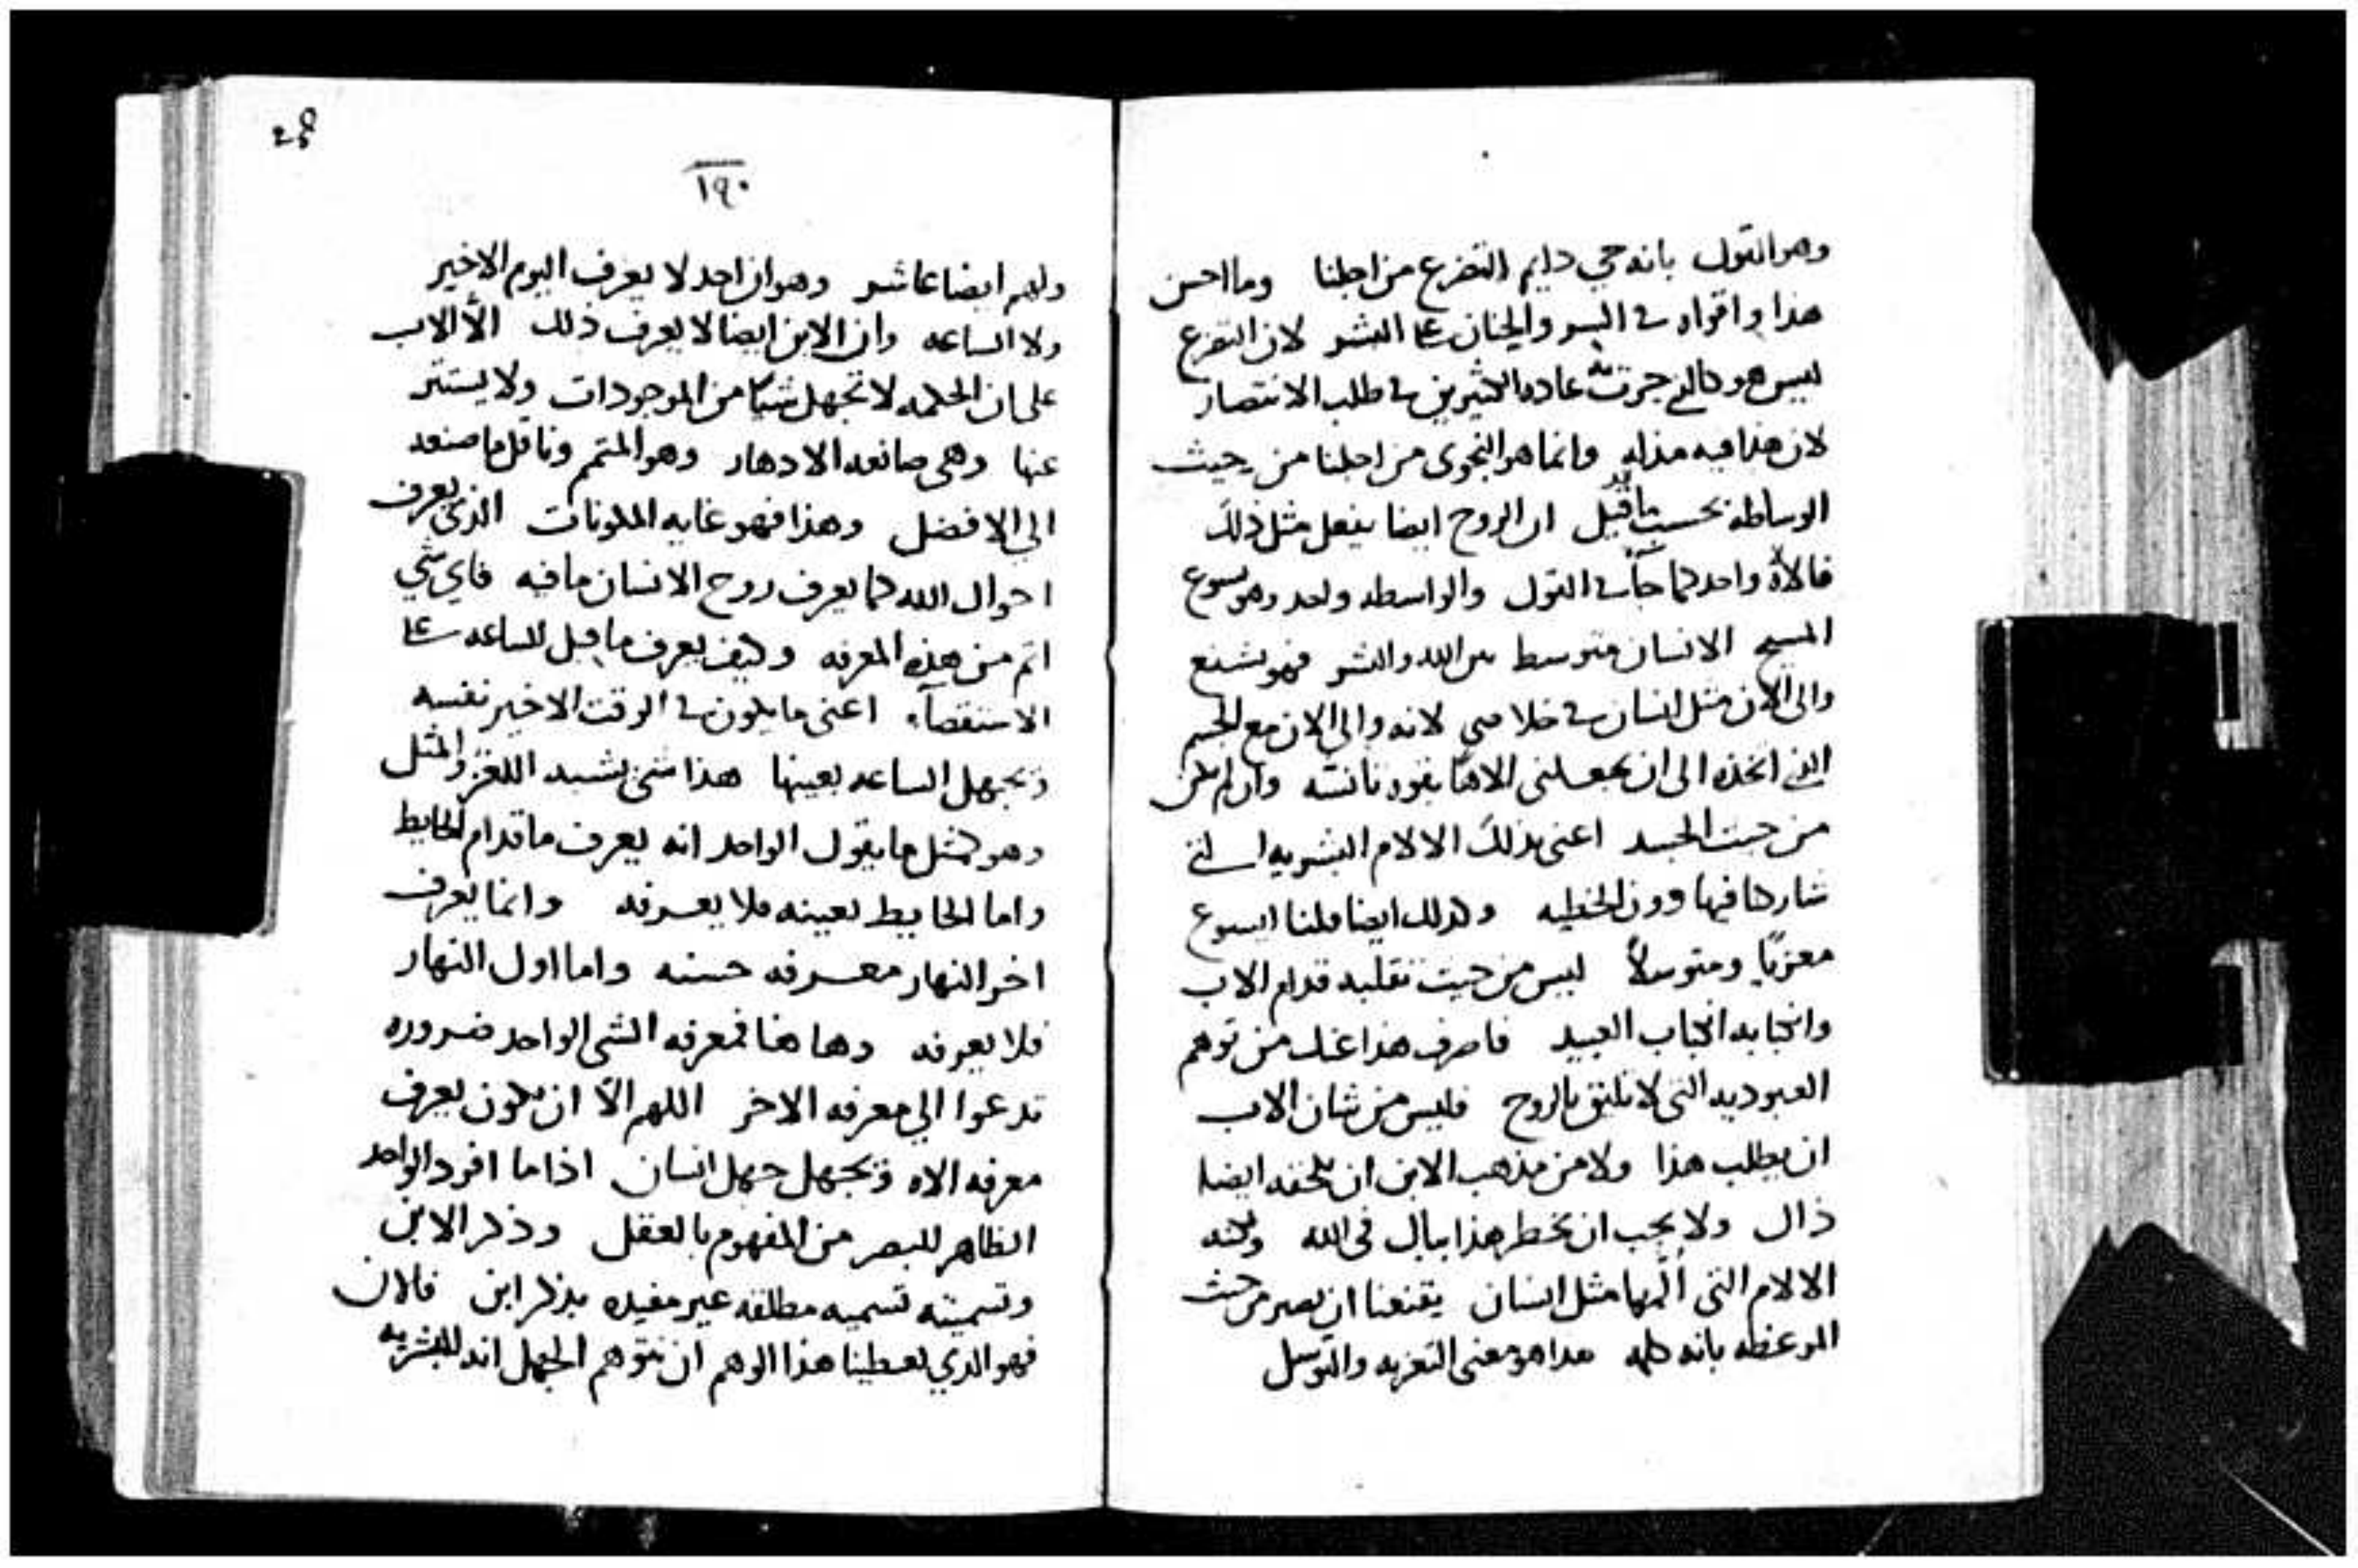 وهو القول بانه حي دايم التضرع من اجلنا وما احسن
هذا واقواه في السر والحنان على البشر لان التضرع
ليس هو كالذي جرت به عاده الكثيرين في طلب الانتصار
لان هذا فيه مذله وانما هو النجوى من اجلنا من حيث
الوساطه بحسب ما قد قيل ان الروح ايضا يفعل مثل ذلك
فالالاه واحد كما جآ في القول والواسطه واحد وهو يسوع
المسيح الانسان متوسط بين الله والبشر فهو يشفع
والى الان مثل انسان في خلاصي لانه والى الان مع الجسم
الذي اتخذه الى ان يجعلني الاهًا بقوه تانسه وان لم يكن
من جهت الجسد اعني بذلك الالام البشريه التي
شاركنا فيها دون الخطيه وكذلك ايضا فلنا ايسوع
معزيًا ومتوسلاً ليس من حيث تقلبه قدام الاب
وانحبابه انحباب العبيد فاصرف هذا عنك من توهم
العبوديه التي لا تليق بالروح فليس من شان الاب
ان يطلب هذا ولا من مذهب الابن ان يلحقه ايضا
ذاك ولا يجب ان يخطر هذا ببال في الله ولكنه
الالام التي المها مثل انسان يقنعنا ان نصبر من حيث
الموعظه بانه كلمه هذا هو معنى التعزيه والتوسل
25
١٩٠
ولهم ايضا عاشر وهو ان احد لا يعرف اليوم الاخير
ولا الساعه وان الابن ايضا لا يعرف ذلك الاّ الاب
على ان الحكمه لا تجهل شيًا من الموجودات ولا يستتر
عنها وهي صانعه الادهار وهو المتمم وناقل ما صنعه
الي الافضل وهذا فهو غايه المكونات الذي يعرف
احوال الله كما يعرف روح الانسان ما فيه فاي شي
اتم من هذه المعرفه وكيف يعرف ما قبل الساعه على
الاستقصآ اعني ما يكون في الوقت الاخير نفسه
ويجهل الساعه بعينها هذا شي يشبه اللغز والمثل
وهو كمثل ما يقول الواحد انه يعرف ما قدام الحايط
واما الحايط بعينه فلا يعرفه وانما يعرف
اخر النهار معرفه حسنه واما اول النهار
فلا يعرفه وها هنا فمعرفه الشي الواحد ضروره
تدعوا الي معرفه الاخر اللهم الاّ ان يكون يعرف
معرفه الاه ويجهل جهل انسان اذا ما افرد الواحد
الظاهر للبصر من المفهوم بالعقل وذكر الابن
وتسميته تسميه مطلقه غير مقيده بذكر ابن فلان
فهو الذي يعطينا هذا الوهم ان نتوهم الجهل انه للبشريه